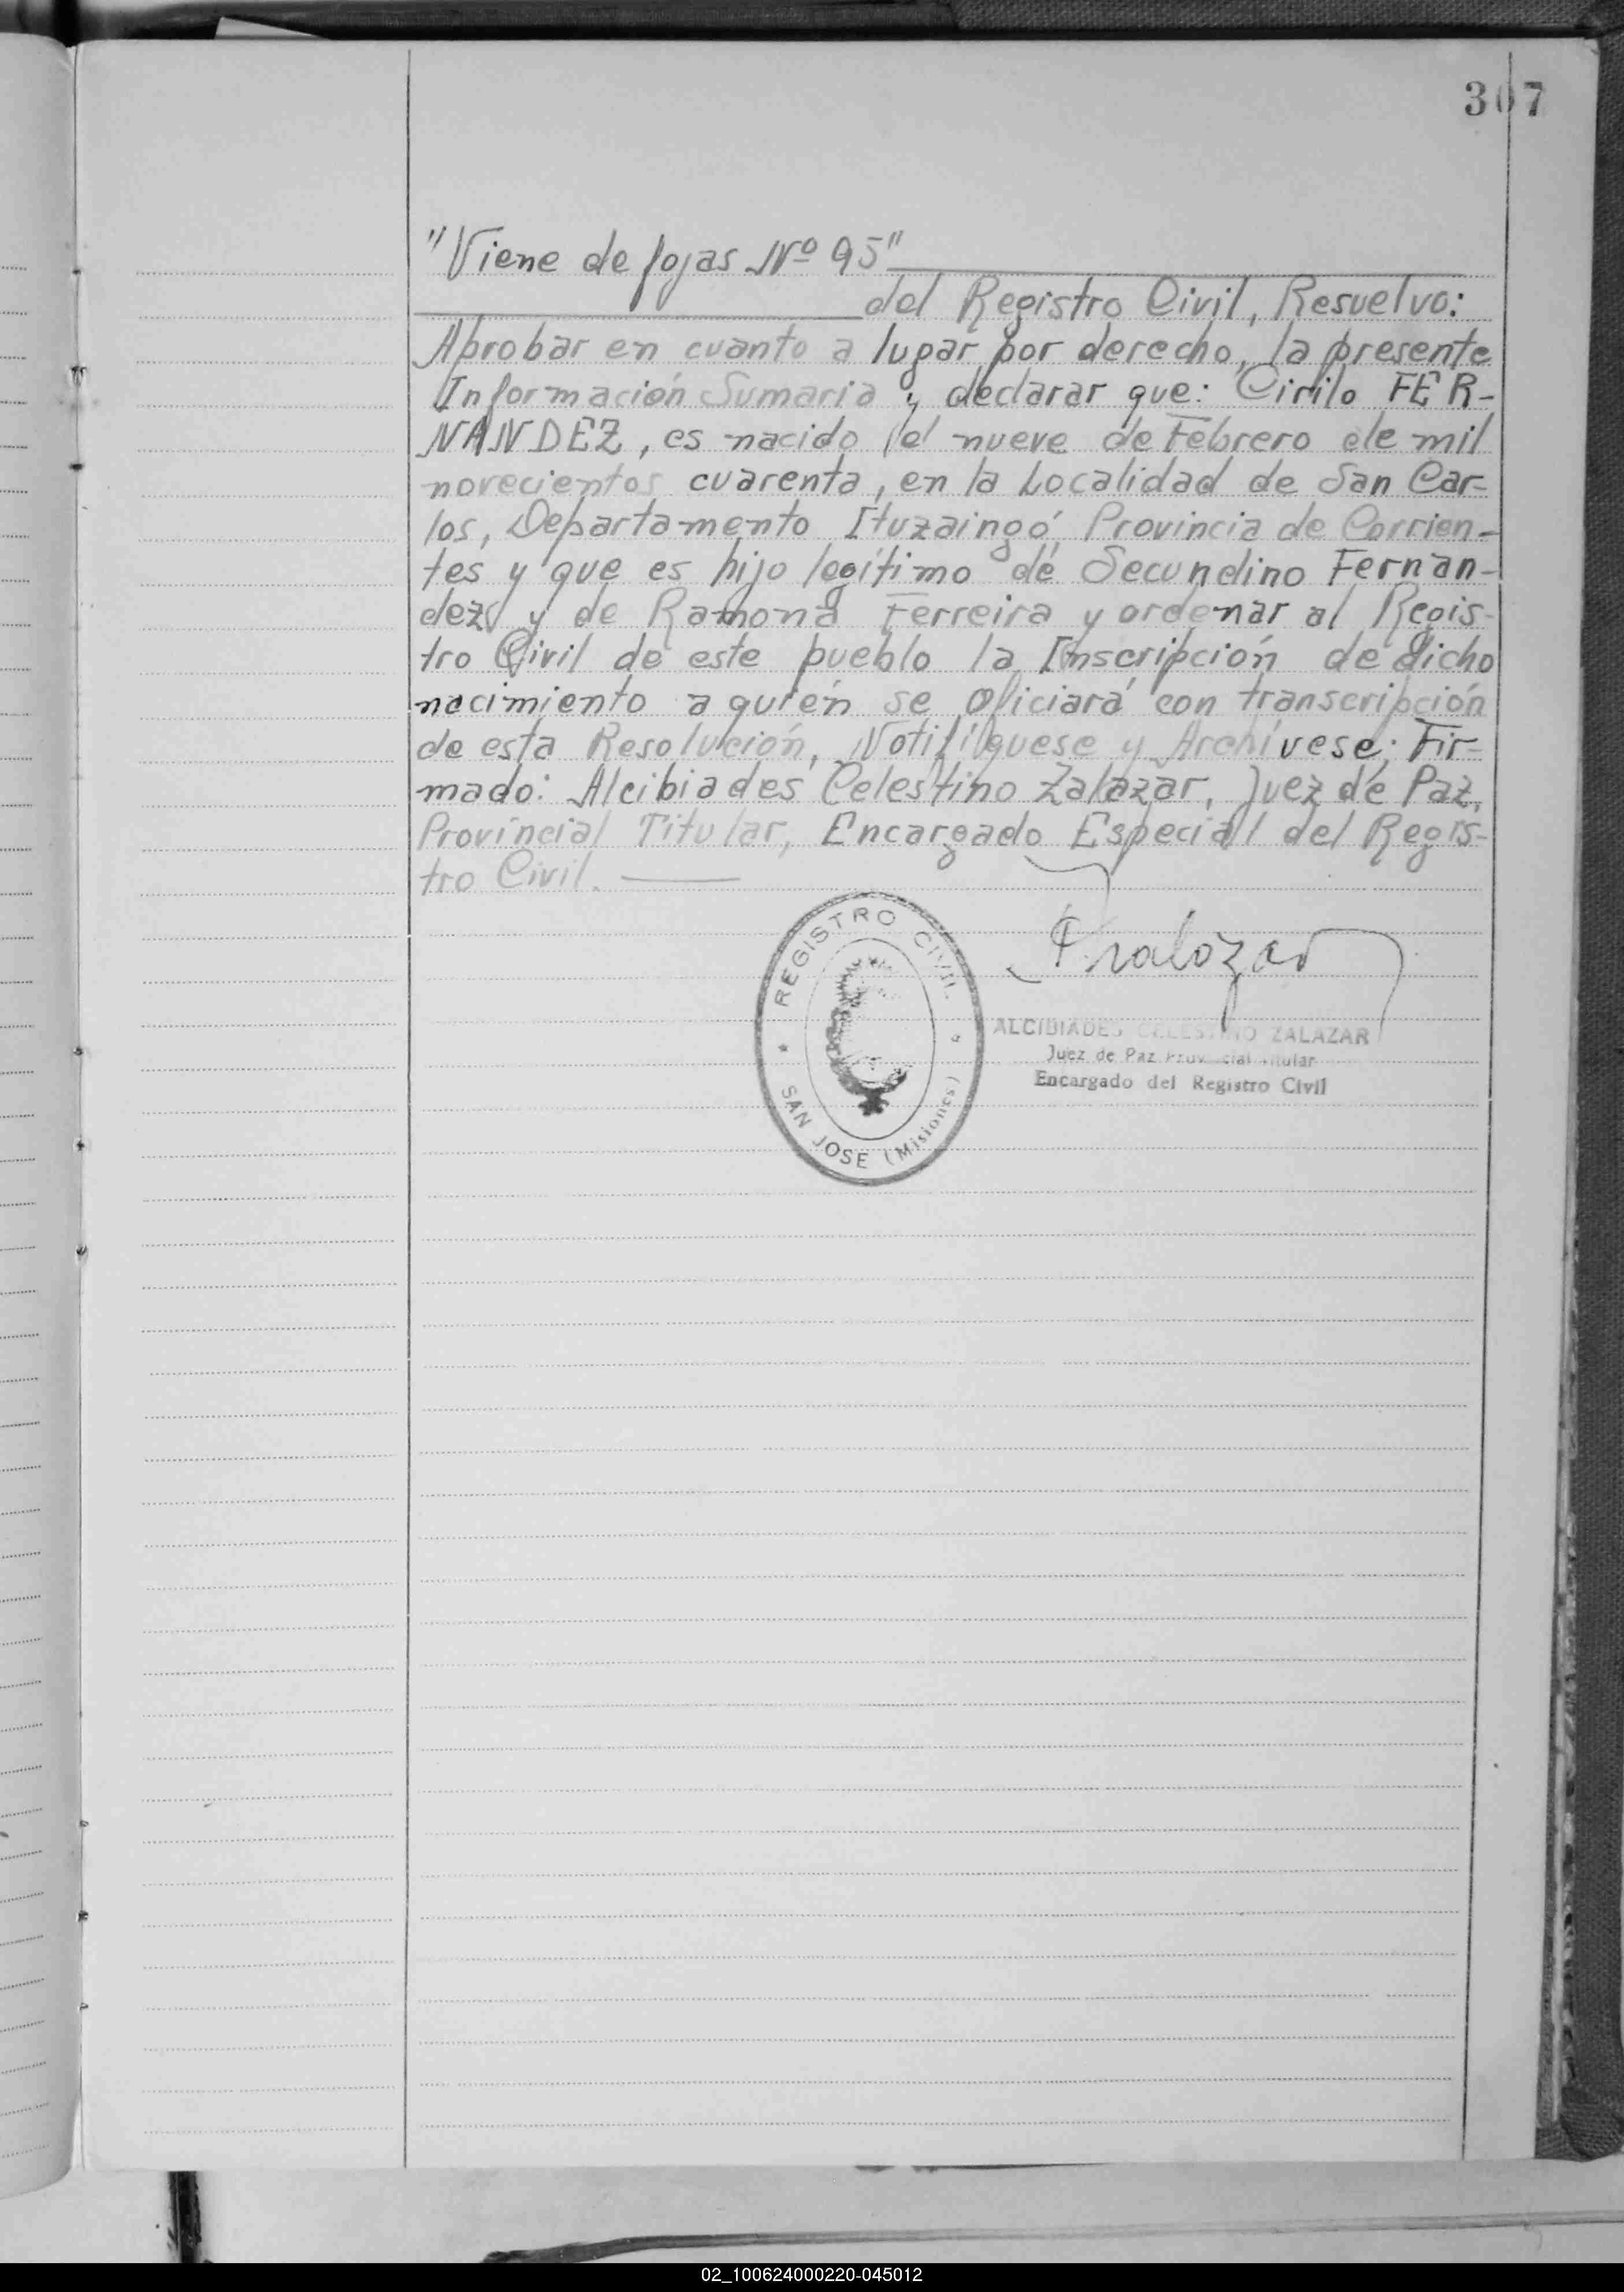 307
"Viene de fojas Nº 95"
del Registro Civil, Resuelvo:
Aprobar en cuanto a lugar por derecho, la presente
Información Sumaria y declarar que: Cirilo FER-
NANDEZ, es nacido el nueve de Febrero de mil
novecientos cuarenta, en la Localidad de San Car-
los, Departamento Ituzaingó, Provincia de Corrien-
tes y que es hijo legítimo de Secundino Fernan-
dez y de Ramona Ferreira y ordenar al Regis-
tro Civil de este pueblo la Inscripción de dicho
nacimiento a quién se oficiará con transcripción
de esta Resolución, Notifíquese y Archívese; Fir-
mado: Alcibiades Celestino Zalazar, Juez de Paz,
Provincial Titular, Encargado Especial del Regis-
tro Civil.
REGISTRO CIVIL
SAN JOSE (Misiones)
ALCIBIADES CELESTINO ZALAZAR
Juez de Paz Provincial Titular
Encargado del Registro Civil
02_100624000220-045012